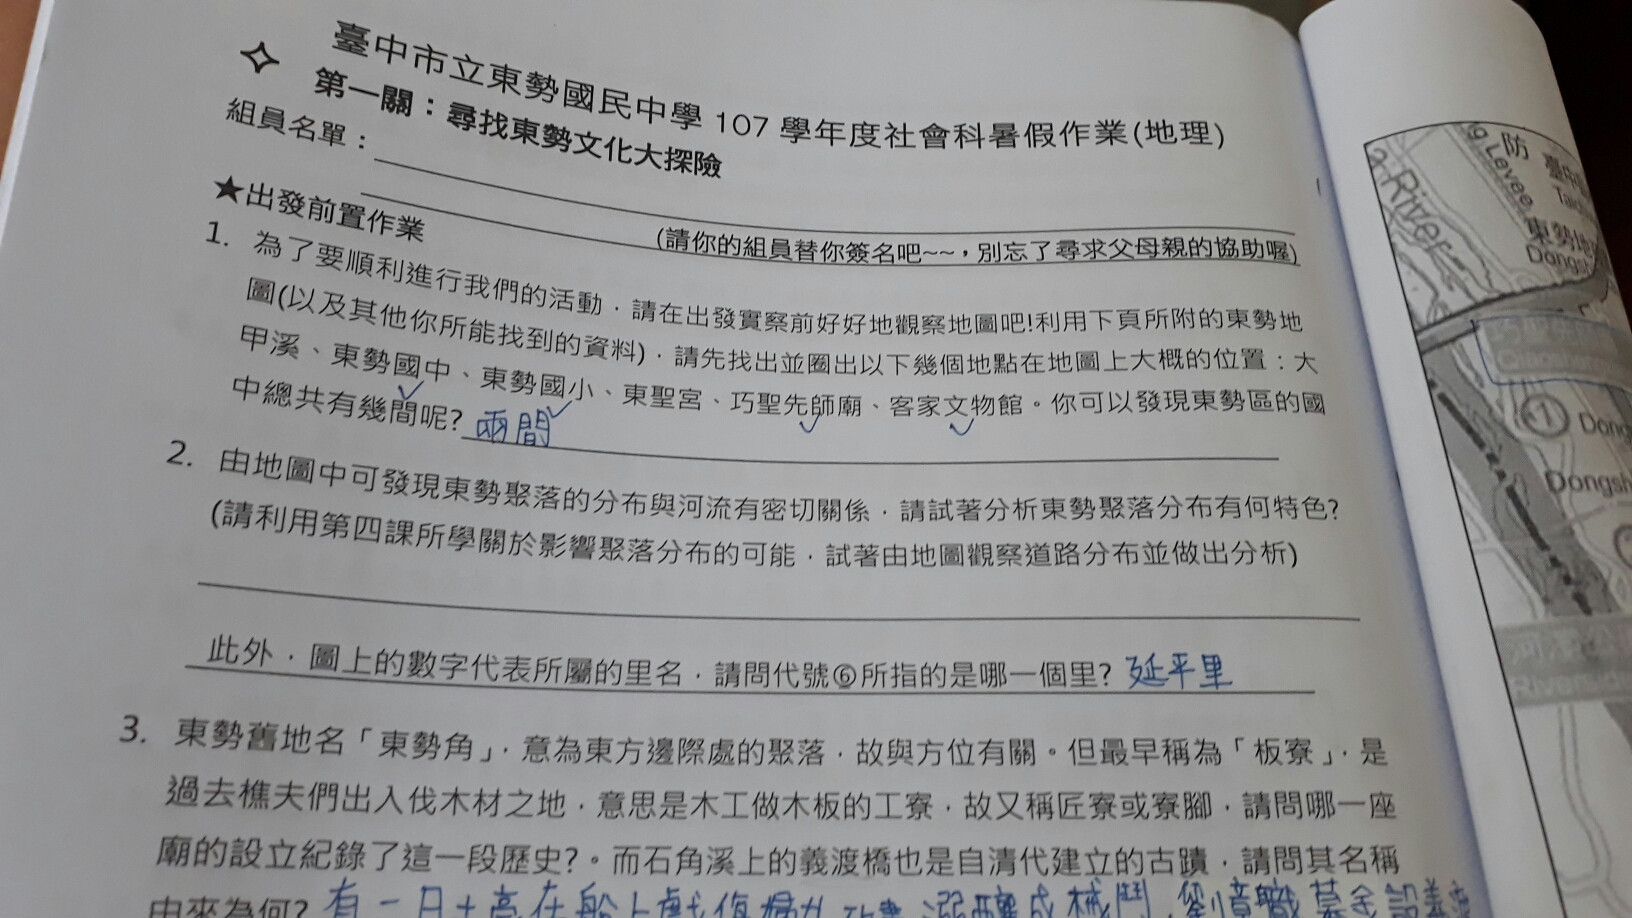 臺中市立東勢國民中學 107 學年度社會科暑假作業(地理)
第一關：尋找東勢文化大探險
組員名單：
(請你的組員替你簽名吧~~，別忘了尋求父母親的協助喔)
★出發前置作業
1. 為了要順利進行我們的活動，請在出發實察前好好地觀察地圖吧!利用下頁所附的東勢地
圖(以及其他你所能找到的資料)，請先找出並圈出以下幾個地點在地圖上大概的位置：大
甲溪、東勢國中、東勢國小、東聖宮、巧聖先師廟、客家文物館。你可以發現東勢區的國
中總共有幾間呢? 兩間
2. 由地圖中可發現東勢聚落的分布與河流有密切關係，請試著分析東勢聚落分布有何特色?
(請利用第四課所學關於影響聚落分布的可能，試著由地圖觀察道路分布並做出分析)
此外，圖上的數字代表所屬的里名，請問代號⑥所指的是哪一個里? 延平里
3. 東勢舊地名「東勢角」，意為東方邊際處的聚落，故與方位有關。但最早稱為「板寮」，是
過去樵夫們出入伐木材之地，意思是木工做木板的工寮，故又稱匠寮或寮腳，請問哪一座
廟的設立紀錄了這一段歷史?。而石角溪上的義渡橋也是自清代建立的古蹟，請問其名稱
由來為何? 有一日土豪在船上戲
River
Levee
防
東勢